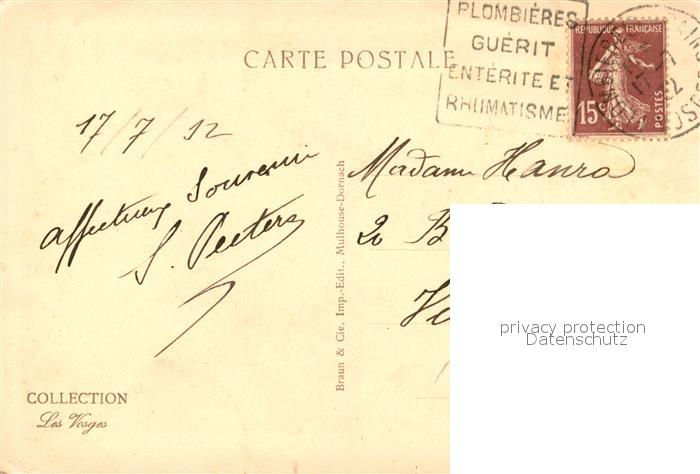 CARTE POSTALE
PLOMBIÈRES
GUÉRIT
ENTÉRITE ET
RHUMATISME
REPUBLIQUE FRANÇAISE
15c
POSTES
17/7/32
affectueux Souvenir
S. Peeters
Madame Hanra
20 B
Braun & Cie, Imp.-Edit., Mulhouse-Dornach
COLLECTION
Les Vosges
privacy protection
Datenschutz